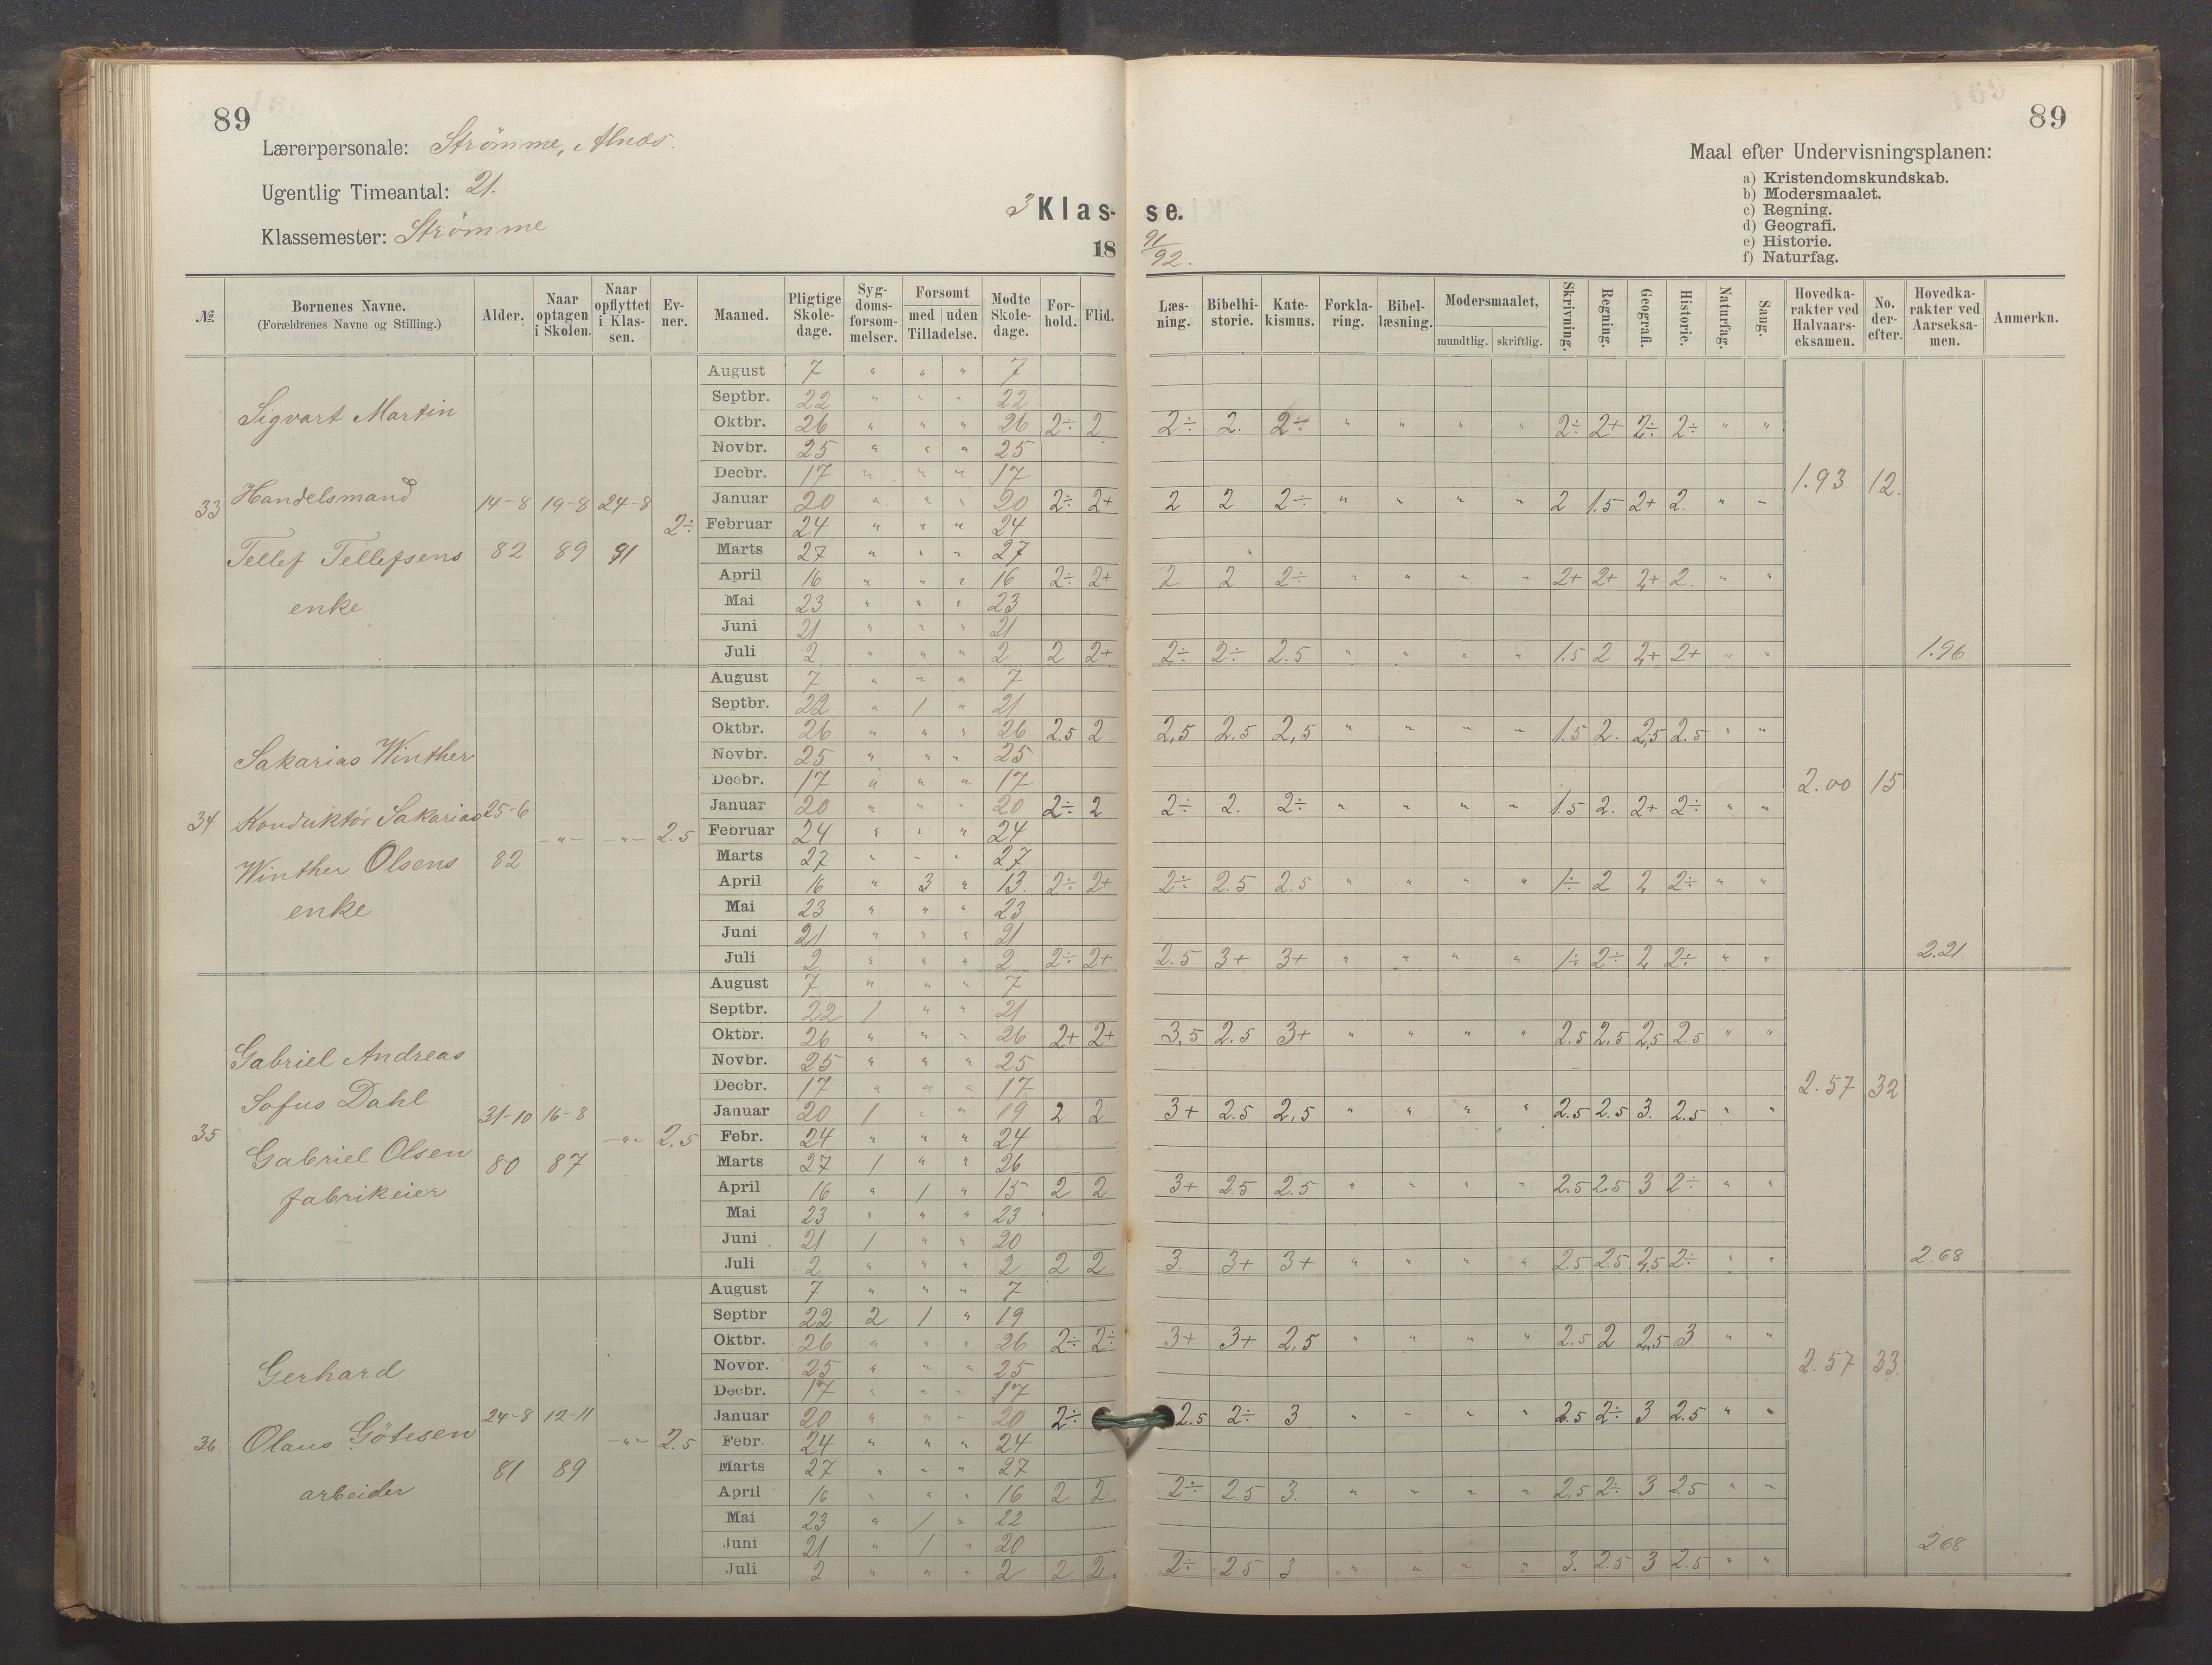 89
89
Lærerpersonale: Strømme, Alnæs.
Ugentlig Timeantal: 21.
Klassemester: Strømme
3 Klas- se.
18 91/92.
Maal efter Undervisningsplanen:
a) Kristendomskundskab.
b) Modersmaalet.
c) Regning.
d) Geografi.
e) Historie.
f) Naturfag.
№ Børnenes Navne. (Forældrenes Navne og Stilling.) Alder. Naar optagen i Skolen. Naar opflyttet i Klassen. Evner. Maaned. Pligtige Skoledage. Sygdomsforsommelser. Forsømt med uden Tilladelse. Mødte Skoledage. Forhold. Flid. Læsning. Bibelhistorie. Katekismus. Forklaring. Bibellæsning. Modersmaalet, mundtlig. skriftlig. Skrivning. Regning. Geografi. Historie. Naturfag. Sang. Hovedkarakter ved Halvaarseksamen. No. derefter. Hovedkarakter ved Aarseksamen. Anmerkn.
33 Sigvart Martin
Handelsmand 14-8 19-8 24-8
Tellef Tellefsens 82 89 91 2÷
enke
August 7 " " " 7
Septbr. 22 " " " 22
Oktbr. 26 " " " 26 2÷ 2 2÷ 2. 2÷ " " " " 2÷ 2+ 2÷ 2÷ " "
Novbr. 25 " " " 25
Decbr. 17 " " " 17 1.93 12.
Januar 20 " " " 20 2÷ 2+ 2 2 2÷ " " " " 2 1.5 2+ 2. " "
Februar 24 " " " 24
Marts 27 " " " 27
April 16 " " " 16 2÷ 2+ 2 2 2÷ " " " " 2+ 2+ 2+ 2. " "
Mai 23 " " " 23
Juni 21 " " " 21
Juli 2 " " " 2 2 2+ 2÷ 2÷ 2.5 " " " " 1.5 2 2+ 2+ " " 1.96
34 Sakarias Winther
Konduktör Sakarias 25-6
Winther Olsens 82 -"- -"- 2.5
enke
August 7 " " " 7
Septbr. 22 " 1 " 21
Oktbr. 26 " " " 26 2.5 2 2,5 2.5 2,5 " " " " 1.5 2. 2,5 2.5 " "
Novbr. 25 " " " 25
Decbr. 17 " " " 17 2.00 15
Januar 20 " " " 20 2÷ 2 2÷ 2. 2÷ " " " " 1.5 2. 2+ 2÷ " "
Februar 24 " " " 24
Marts 27 " " " 27
April 16 " 3 " 13. 2÷ 2+ 2÷ 2.5 2.5 " " " " 1÷ 2 2 2÷ " "
Mai 23 " " " 23
Juni 21 " " " 21
Juli 2 " " " 2 2÷ 2+ 2.5 3+ 3+ " " " " 1÷ 2÷ 2 2÷ " " 2.21.
35 Gabriel Andreas
Sofus Dahl 31-10 16-8
Gabriel Olsen 80 87 -"- 2.5
fabrikeier
August 7 " " " 7
Septbr. 22 1 " " 21
Oktbr. 26 " " " 26 2+ 2+ 3,5 2.5 3+ " " " " 2.5 2,5 2,5 2.5 " "
Novbr. 25 " " " 25
Decbr. 17 " " " 17 2.57 32
Januar 20 1 " " 19 2 2 3+ 2.5 2,5 " " " " 2.5 2.5 3. 2.5 " "
Febr. 24 " " " 24
Marts 27 1 " " 26
April 16 " 1 " 15 2 2 3+ 2.5 2.5 " " " " 2.5 2.5 3 2÷ " "
Mai 23 " " " 23
Juni 21 1 " " 20
Juli 2 " " " 2 2 2 3. 3+ 3+ " " " " 2.5 2.5 2,5 2÷ " " 2.68
36. Gerhard
Olaus Götesen 24-8 12-11
arbeider 81 89 -"- 2.5
August 7 " " " 7
Septbr 22 2 1 " 19
Oktbr. 26 " " " 26 2÷ 2÷ 3+ 3+ 2,5 " " " " 2.5 2 2,5 3 " "
Novbr. 25 " " " 25 2.57 33.
Decbr. 17 " " " 17
Januar 20 " " " 20 2÷ 2.5 2÷ 3 " " " " 2.5 2÷ 3 2.5 " "
Febr. 24 " " " 24
Marts 27 " " " 27
April 16 " " " 16 2 2 2÷ 2.5 3. " " " " 2.5 2÷ 3 2.5 " "
Mai 23 " 1 " 22
Juni 21 " 1 " 20 2.68
Juli 2 " " " 2 2 2 2÷ 2.5 3 " " " " 3. 2.5 3 2.5 " "